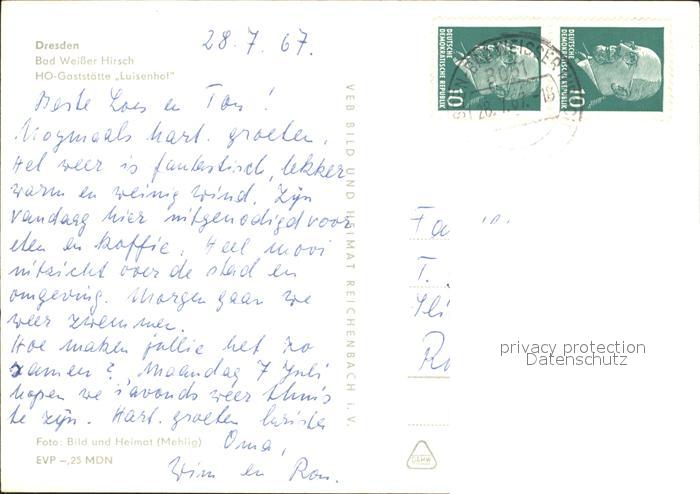 Dresden
Bad Weißer Hirsch
HO-Gaststätte „Luisenhof"
28.7.67.
Beste Loes en Ton!
Nogmaals hart. groeten.
Het weer is fantastisch, lekker
warm en weinig wind. Zijn
vandaag hier uitgenodigd voor
eten en koffie. Heel mooi
uitzicht over de stad en
omgeving. Morgen gaan we
weer zwemmen.
Hoe maken jullie het zo
samen? Maandag 7 Juli
hopen we s'avonds weer thuis
te zijn. Hart. groeten
Oma,
Wim en Ron.
Foto: Bild und Heimat (Mehlig)
EVP –,25 MDN
VEB BILD UND HEIMAT REICHENBACH i. V.
DEUTSCHE
DEMOKRATISCHE REPUBLIK
10
DEUTSCHE
DEMOKRATISCHE REPUBLIK
10
Fa
T.
privacy protection
Datenschutz